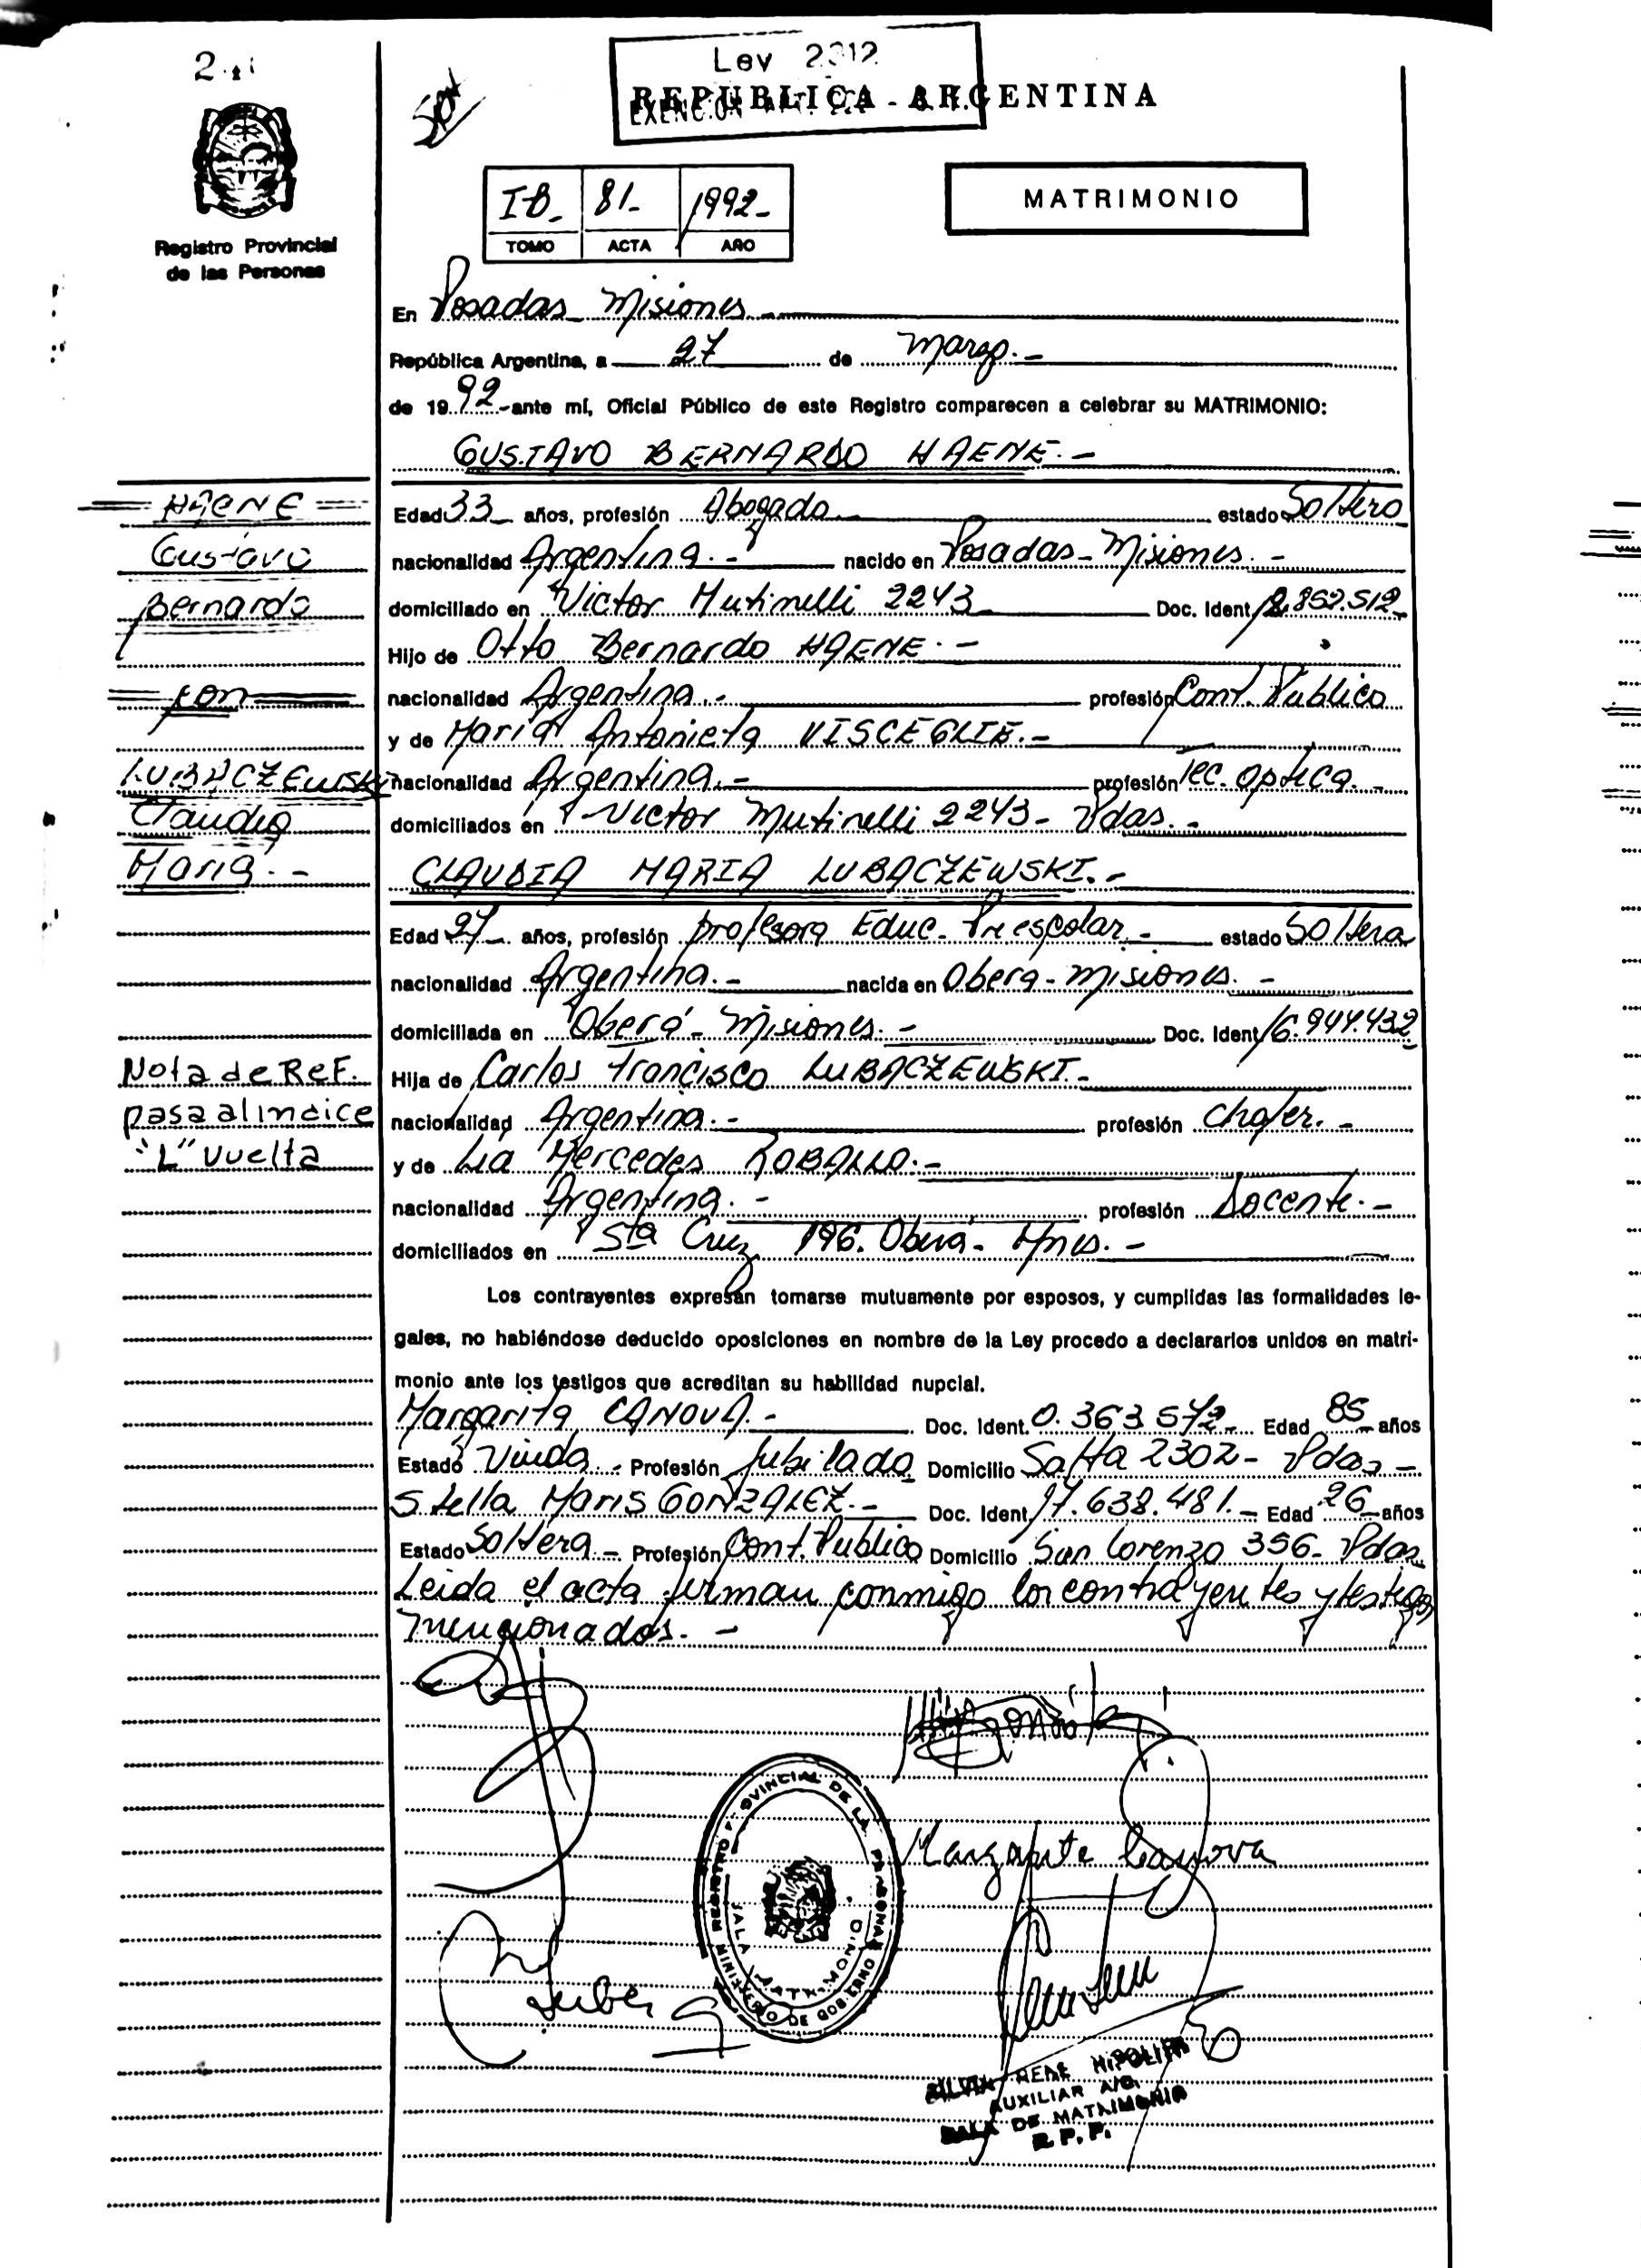 Ley 2312
REPUBLICA ARGENTINA
EXENCION
I-B- 81- 1992-
TOMO ACTA AÑO
MATRIMONIO
Registro Provincial
de las Personas
En Posadas Misiones.-
República Argentina, a 27 de Marzo.-
de 1992-ante mí, Oficial Público de este Registro comparecen a celebrar su MATRIMONIO:
GUSTAVO BERNARDO HAENE.-
HAENE
Gustavo
Bernardo
con
LUBACZEWSKI
Claudia
Maria.-
Edad 33 años, profesión Abogado estado Soltero
nacionalidad Argentina.- nacido en Posadas-Misiones.-
domiciliado en Victor Mutinelli 2243 Doc. Ident 12.852.512-
Hijo de Otto Bernardo HAENE.-
nacionalidad Argentina.- profesión Cont. Publico
y de Maria Antonieta VISCEGLIE.-
nacionalidad Argentina.- profesión Tec. optica.-
domiciliados en Victor Mutinelli 2243- Pdas.-
CLAUDIA MARIA LUBACZEWSKI.-
Edad 27 años, profesión profesora Educ. Preescolar.- estado Soltera
nacionalidad Argentina.- nacida en Obera-Misiones.-
domiciliada en Oberá-Misiones.- Doc. Ident 16.944.432
Hija de Carlos Francisco LUBACZEWSKI.-
nacionalidad Argentina.- profesión Chofer.-
y de Lia Mercedes ROBALLO.-
nacionalidad Argentina.- profesión Docente.-
domiciliados en Sta Cruz 196. Oberá- Mnes.-
Nota de ReF.
pasa al indice
"L" vuelta
Los contrayentes expresan tomarse mutuamente por esposos, y cumplidas las formalidades le-
gales, no habiéndose deducido oposiciones en nombre de la Ley procedo a declararlos unidos en matri-
monio ante los testigos que acreditan su habilidad nupcial.
Margarita CANOVA.- Doc. Ident. 0.363.572- Edad 85 años
Estado Viuda.- Profesión Jubilada Domicilio Salta 2302- Pdas-
Stella Maris GONZALEZ.- Doc. Ident 17.638.481.- Edad 26 años
Estado Soltera.- Profesión Cont. Publico Domicilio San Lorenzo 356- Pdas
Leida el acta firman conmigo los contrayentes y testigos
mencionados.-
Margarita Canova
MINISTERIO DE GOBIERNO REGISTRO PROVINCIAL DE LA PERSONAS
SALA MATRIMONIO
SILVIA RENE HIPOLITO
AUXILIAR A/C.
SALA DE MATRIMONIO
R. P. P.